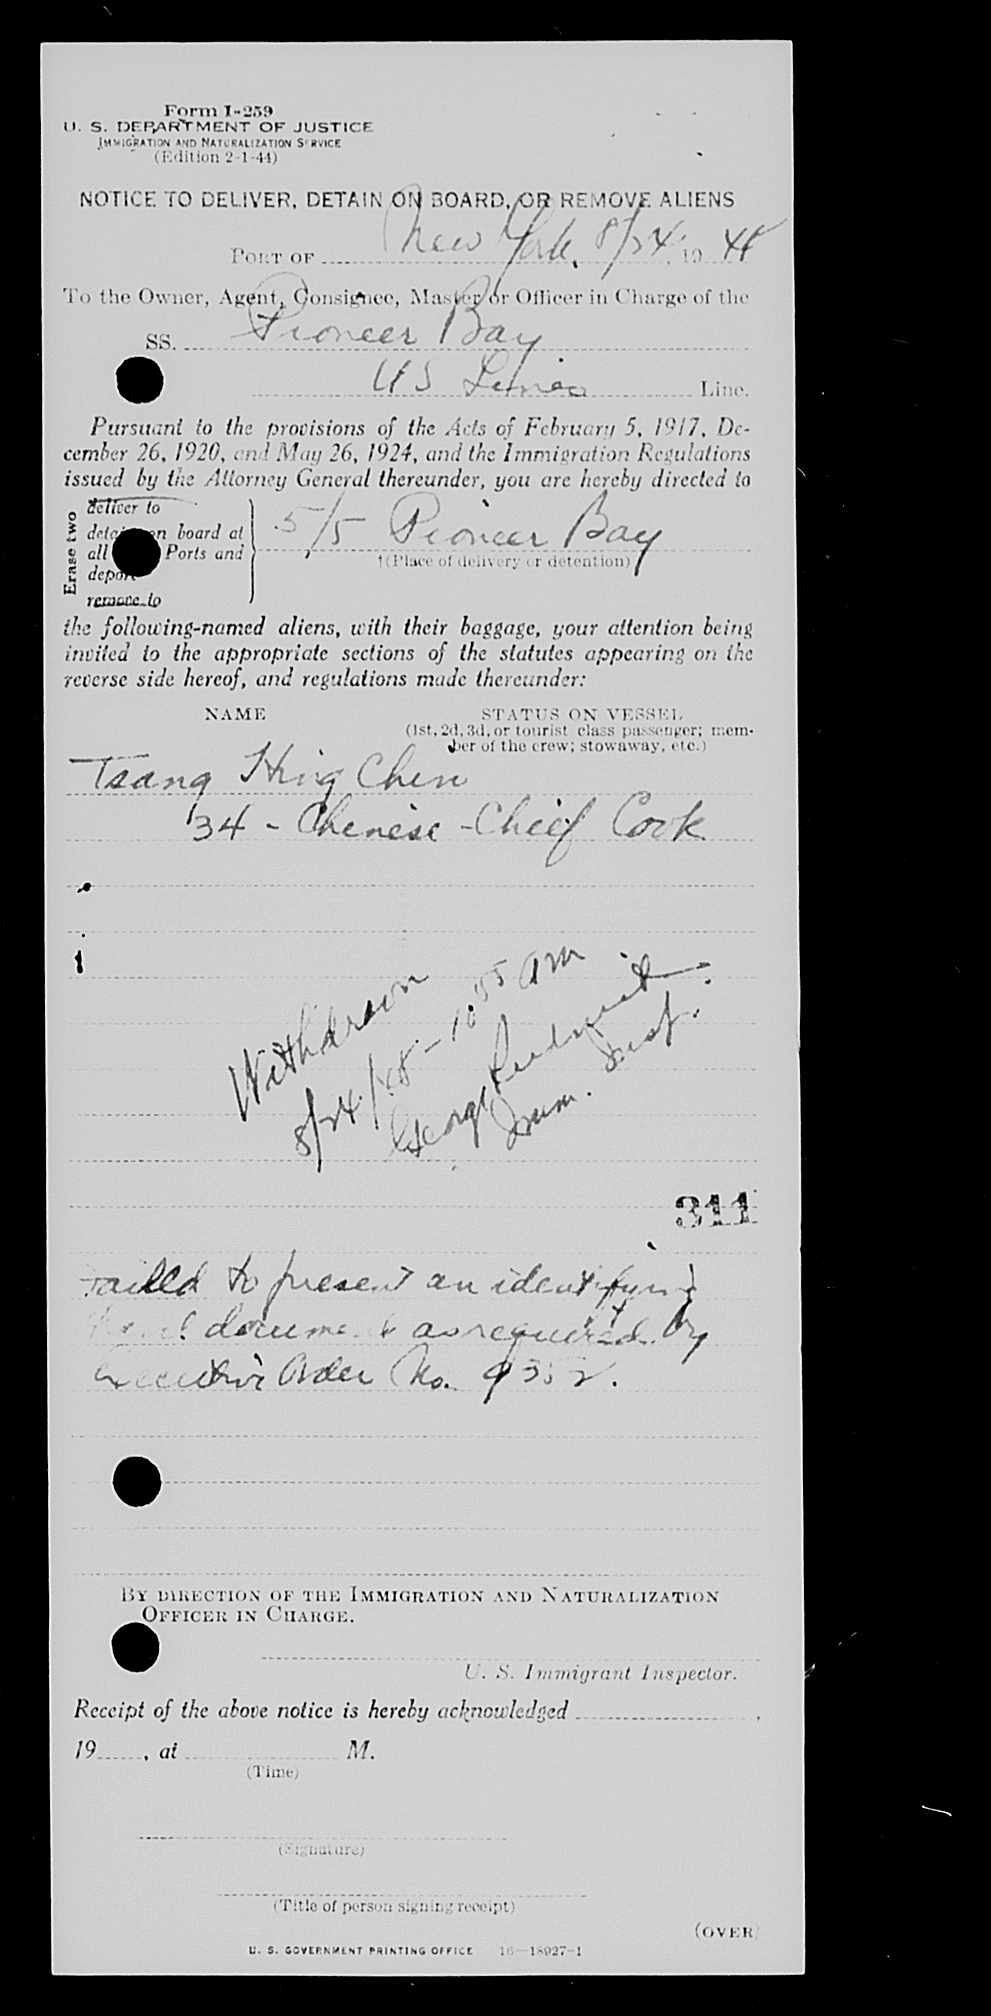 Form I-259
U. S. DEPARTMENT OF JUSTICE
IMMIGRATION AND NATURALIZATION SERVICE
(Edition 2-1-44)
NOTICE TO DELIVER, DETAIN ON BOARD, OR REMOVE ALIENS
PORT OF New York, 8/24, 19 48
To the Owner, Agent, Consignee, Master or Officer in Charge of the
SS. Pioneer Bay
US Lines Line.
Pursuant to the provisions of the Acts of February 5, 1917, De-
cember 26, 1920, and May 26, 1924, and the Immigration Regulations
issued by the Attorney General thereunder, you are hereby directed to
Erase two
deliver to
detain on board at
all Ports and
deport
remove to
S/S Pioneer Bay
†(Place of delivery or detention)
the following-named aliens, with their baggage, your attention being
invited to the appropriate sections of the statutes appearing on the
reverse side hereof, and regulations made thereunder:
NAME STATUS ON VESSEL
(1st, 2d, 3d, or tourist class passenger; mem-
ber of the crew; stowaway, etc.)
Tsang Hing Chen
34 - Chinese - Chief Cook
Withdrawn
8/24/48 - 10:55 am
George
Imm. Insp.
311
Failed to present an identifying
travel document as required by
Executive Order No. 9352.
BY DIRECTION OF THE IMMIGRATION AND NATURALIZATION
OFFICER IN CHARGE.
U. S. Immigrant Inspector.
Receipt of the above notice is hereby acknowledged ,
19 , at M.
(Time)
(Signature)
(Title of person signing receipt)
(OVER)
U. S. GOVERNMENT PRINTING OFFICE 16—18927-1